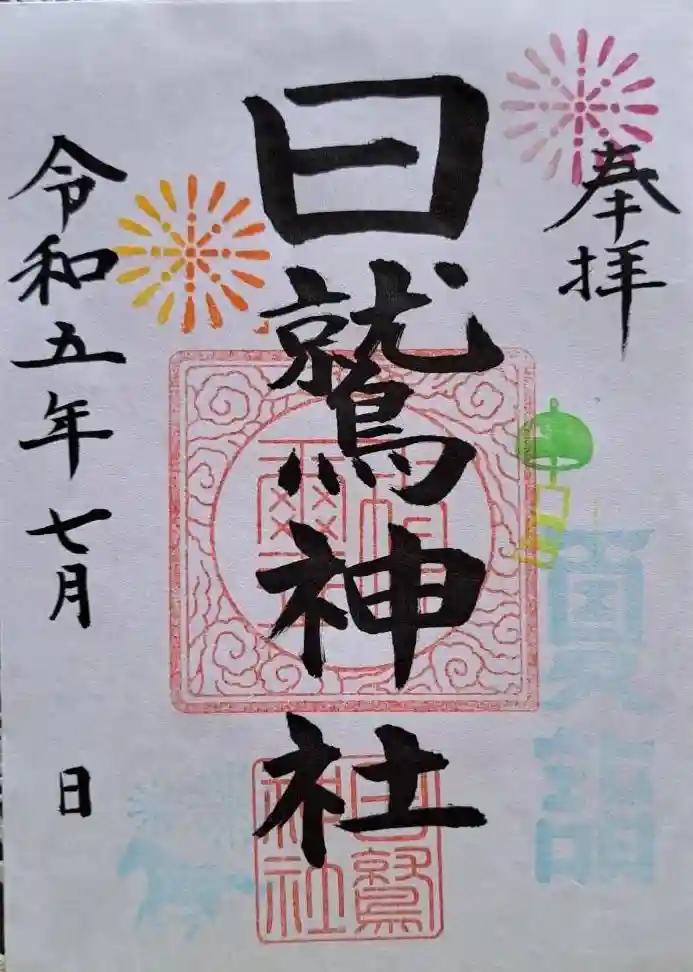 奉拝
夏詣
日鷲神社
日鷲
神社
令和五年七月 日